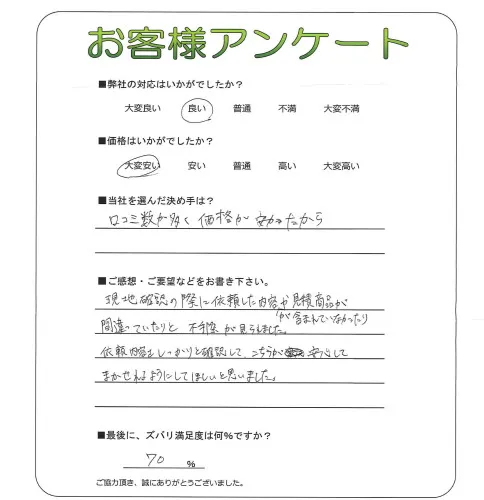 お客様アンケート
■弊社の対応はいかがでしたか？
大変良い 良い 普通 不満 大変不満
■価格はいかがでしたか？
大変安い 安い 普通 高い 大変高い
■当社を選んだ決め手は？
口コミ数が多く価格が安かったから
■ご感想・ご要望などをお書き下さい。
現地確認の際に依頼した内容や見積商品が
が含まれていなかったり
間違っていたりと不手際が見られました。
依頼内容をしっかりと確認して、こちらが安心して
まかせれるようにしてほしいと思いました。
■最後に、ズバリ満足度は何％ですか？
70 ％
ご協力頂き、誠にありがとうございました。